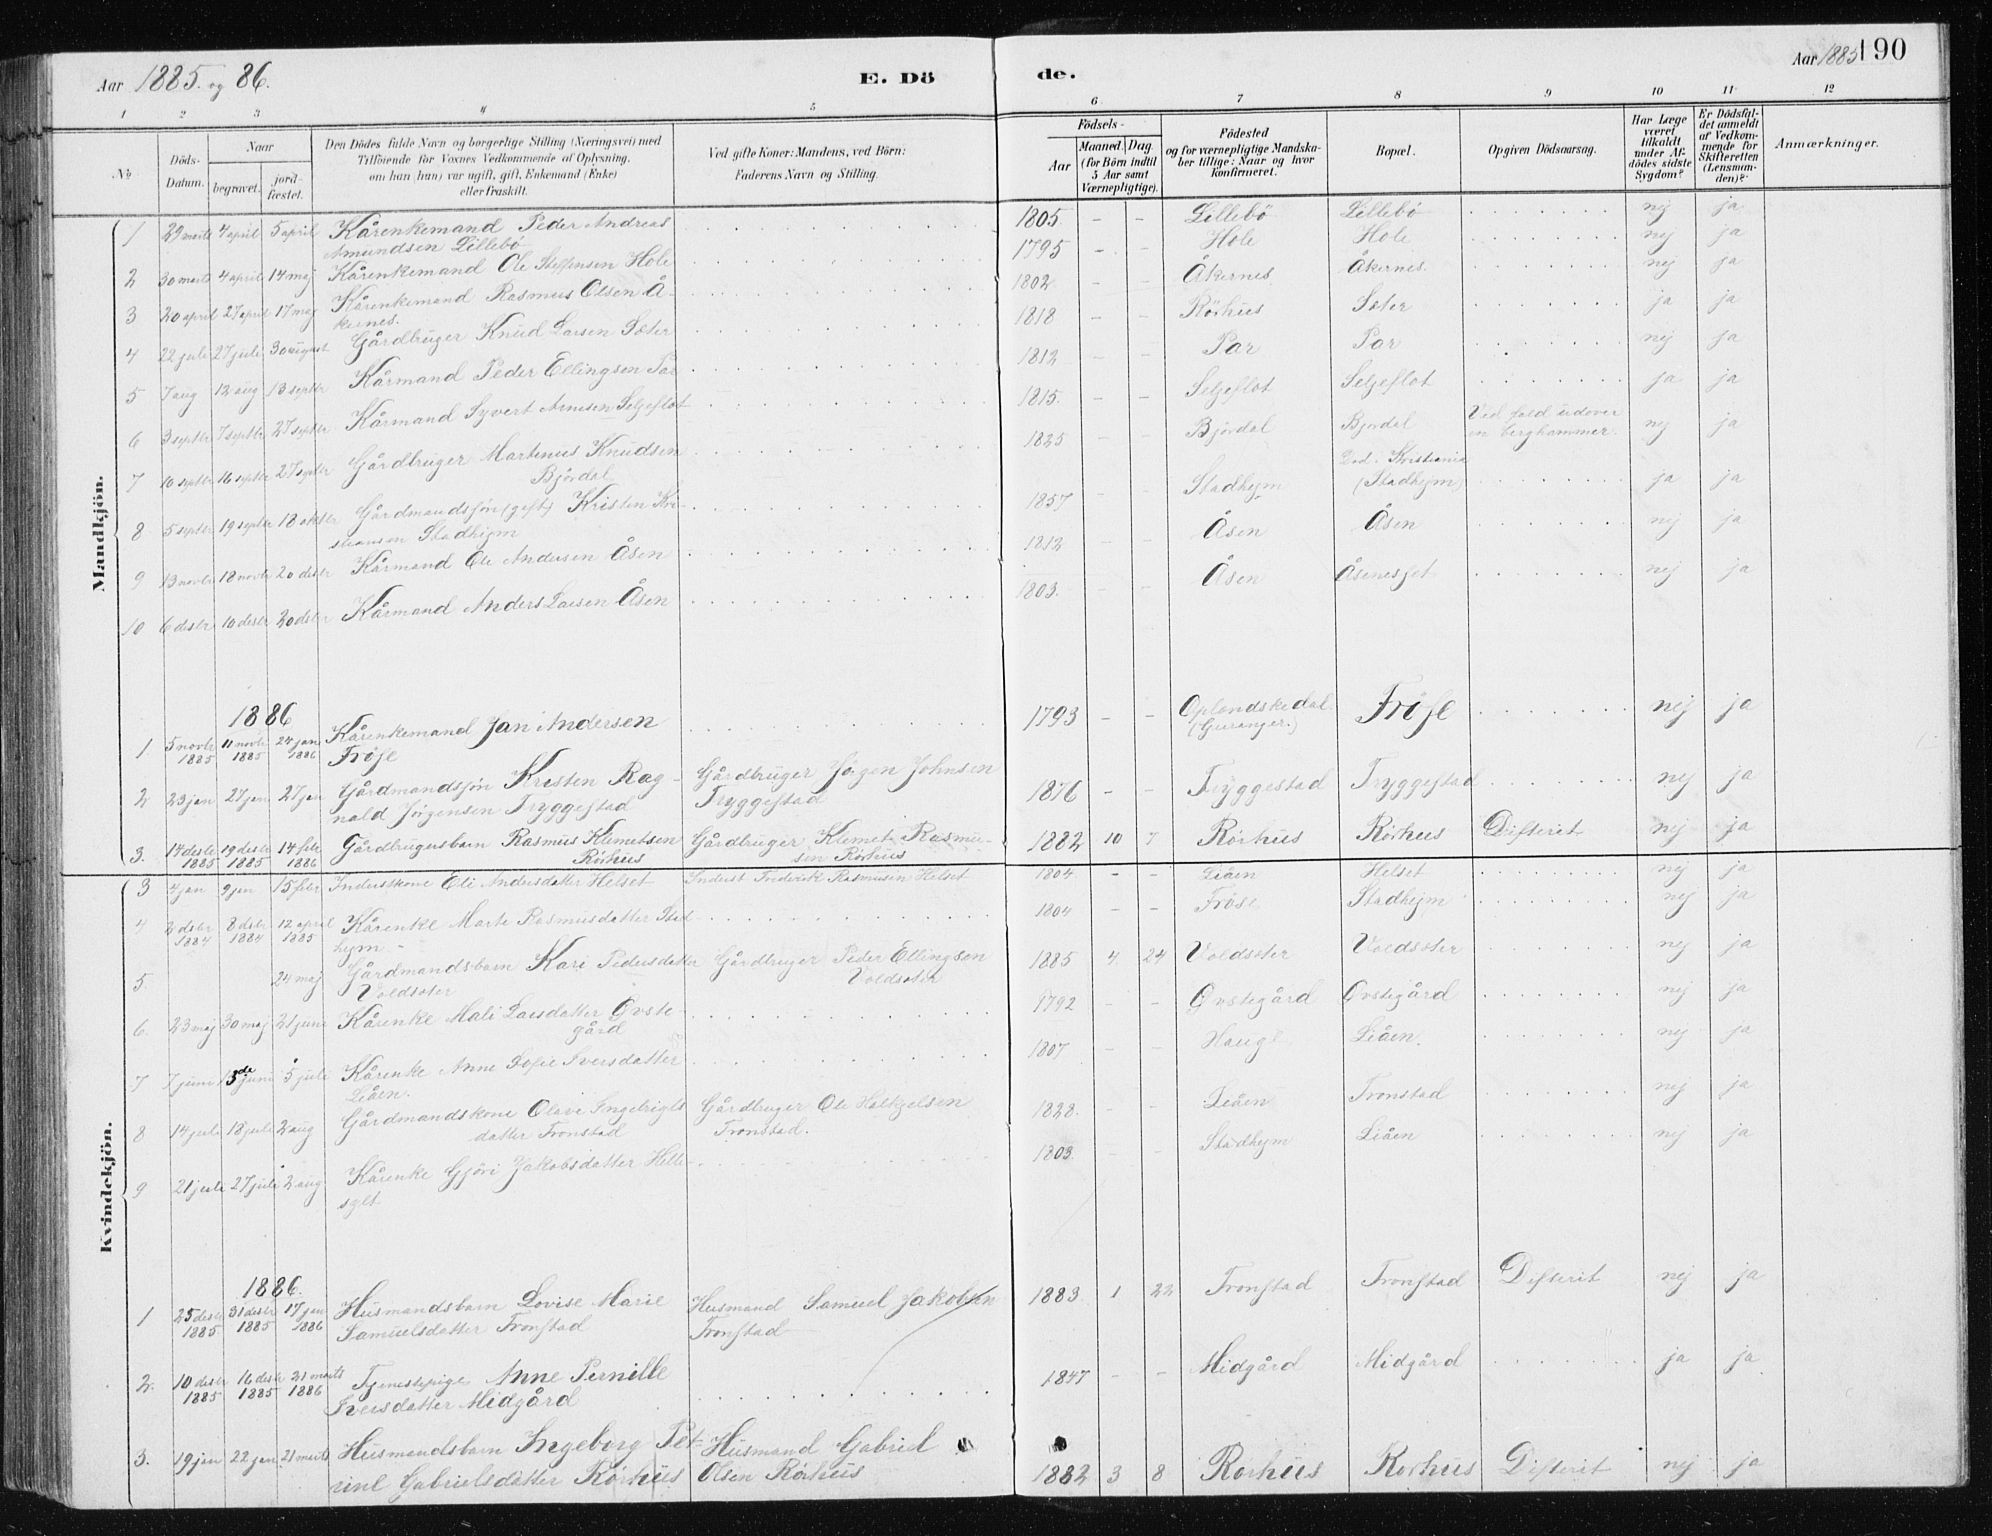 Aar 1885. og 86. E. Dö de. Aar 1885 190
1 2 3 4 5 6 7 8 9 10 11 12
No Döds-Datum. Naar begravet. jordfæstet. Den Dödes fulde Navn og borgerlige Stilling (Næringsvei) med Tilföiende for Voxnes Vedkommende af Oplysning, om han (hun) var ugift, gift, Enkemand (Enke) eller fraskilt. Ved gifte Koner: Mandens, ved Börn: Faderens Navn og Stilling. Födsels- Aar Maaned. Dag. (for Börn indtil 5 Aar samt Værnepligtige). Födested og for værnepligtige Mandskaber tillige: Naar og hvor konfirmeret. Bopæl. Opgiven Dödsaarsag. Har Læge været tilkaldt under Afdödes sidste Sygdom? Er Dödsfaldet anmeldt af Vedkommende for Skifteretten (Lensmanden)? Anmærkninger.
Mandkjön.
1 29 marts 4 april 5 april Kårenkemand Peder Andreas Amundsen Lillebö 1805 - - Lillebö Lillebö nej ja
2 30 marts 4 april 14 maj Kårenkemand Ole Steffensen Hole 1795 - - Hole Hole nej ja
3 20 april 27 april 17 maj Kårenkemand Rasmus Olsen Åkernes. 1802 - - Åkernes Åkernes. nej ja
4 22 juli 27 juli 30 august Gårdbruger Knud Larsen Sæter 1818 - - Rörhus Sæter ja ja
5 7 aug 12 aug 13 septbr Kårmand Peder Ellingsen Par 1812 - - Par Par nej ja
6 3 septbr 7 septbr 27 septbr Kårmand Syvert Arnesen Seljeflot 1815. - - Seljeflot Seljeflot ja ja
7 10 septbr 16 septbr 27 septbr Gårdbruger Martinus Knudsen Björdal 1825 - - Björdal Björdal Ved fald udover en berghammer. nej ja
8 5 septbr 19 septbr 18 oktbr Gårdmandssön (gift) Kristen Kristiansen Stadhejm 1857 - - Stadhejm Död. Kristiania (Stadhejm) ja ja
9 13 novbr 18 novbr 20 desbr Kårmand Ole Andersen Åsen 1812 - - Åsen Åsen nej ja
10 6 desbr 10 desbr 20 desbr Kårmand Anders Larsen Åsen 1803. - - Åsen Åsenesset nej ja
1886
1 5 novbr 1885 11 novbr 1885 24 jan 1886 Kårenkemand Jan Andersen Fröse 1793 - - Oplandskedal (Geiranger.) Fröse nej ja
2 23 jan 27 jan 27 jan Gårdmandssön Kristen Ragnald Jörgensen Tryggestad Gårdbruger Jörgen Johnsen Tryggestad 1876 - - Tryggestad Tryggestad nej ja
3. 14 desbr 1885 19 desbr 1885 14 febr 1886 Gårdbrugersbarn Rasmus Klemetsen Rörhus Gårdbruger Klemet Rasmusen Rörhus 1882 10 7 Rörhus Rörhus Difterit nej ja
Kvindekjön.
3 4 jan 9 jan 15 febr Inderstkone Eli Andersdatter Helset Inderst Frederik Rasmusen Helset 1804 - - Liåen Helset nej ja
4 2 desbr 1884 8 desbr 1884 12 april 1885 Kårenke Marte Rasmusdatter Stadhejm 1804 - - Fröse Stadhejm nej ja
5. 24 maj Gårdmandsbarn Kari Pedersdatter Voldsæter Gårdbruger Peder Ellingsen Voldsæter 1885 4. 24 Voldsæter Voldsæter nej ja
6. 23 maj 30 maj 21 juni Kårenke Mali Larsdatter Ovstegård 1792 - - Ovstegård Ovstegård nej ja
7 7 juni 13de juni 5 juli Kårenke Anne Sofie Iversdatter Liåen. 1807 - - Hauge Liåen. nej ja
8 14 juli 18 juli 2 aug Gårdmandskone Olave Ingebrigtsdatter Tronstad Gårdbruger Ole Tronstad. 1828. - - Liåen Tronstad nej ja
9 21 juli 27 juli 2 aug Kårenke Gjöri Jakobsdatter Hellesylt 1803. - - Stadhejm Liåen nej ja
1886.
1 25 desbr 1885 31 desbr 1885 17 jan 1886 Husmandsbarn Lovise Marie Samuelsdatter Tronstad Husmand Samuel Jakobsen Tronstad 1883. 1 22 Tronstad Tronstad Difterit nej ja
2. 10 desbr 1885 16 desbr 1885 21 marts 1886 Tjenestepige Anne Pernille Iversdatter Midgård 1847 - - Midgård Midgård ja ja
3. 19 jan 22 jan 21 marts Husmandsbarn Ingeborg Petrine Gabrielsdatter Rörhus Husmand Gabriel Olsen Rörhus 1882 3 8 Rörhus Rörhus Difterit nej ja